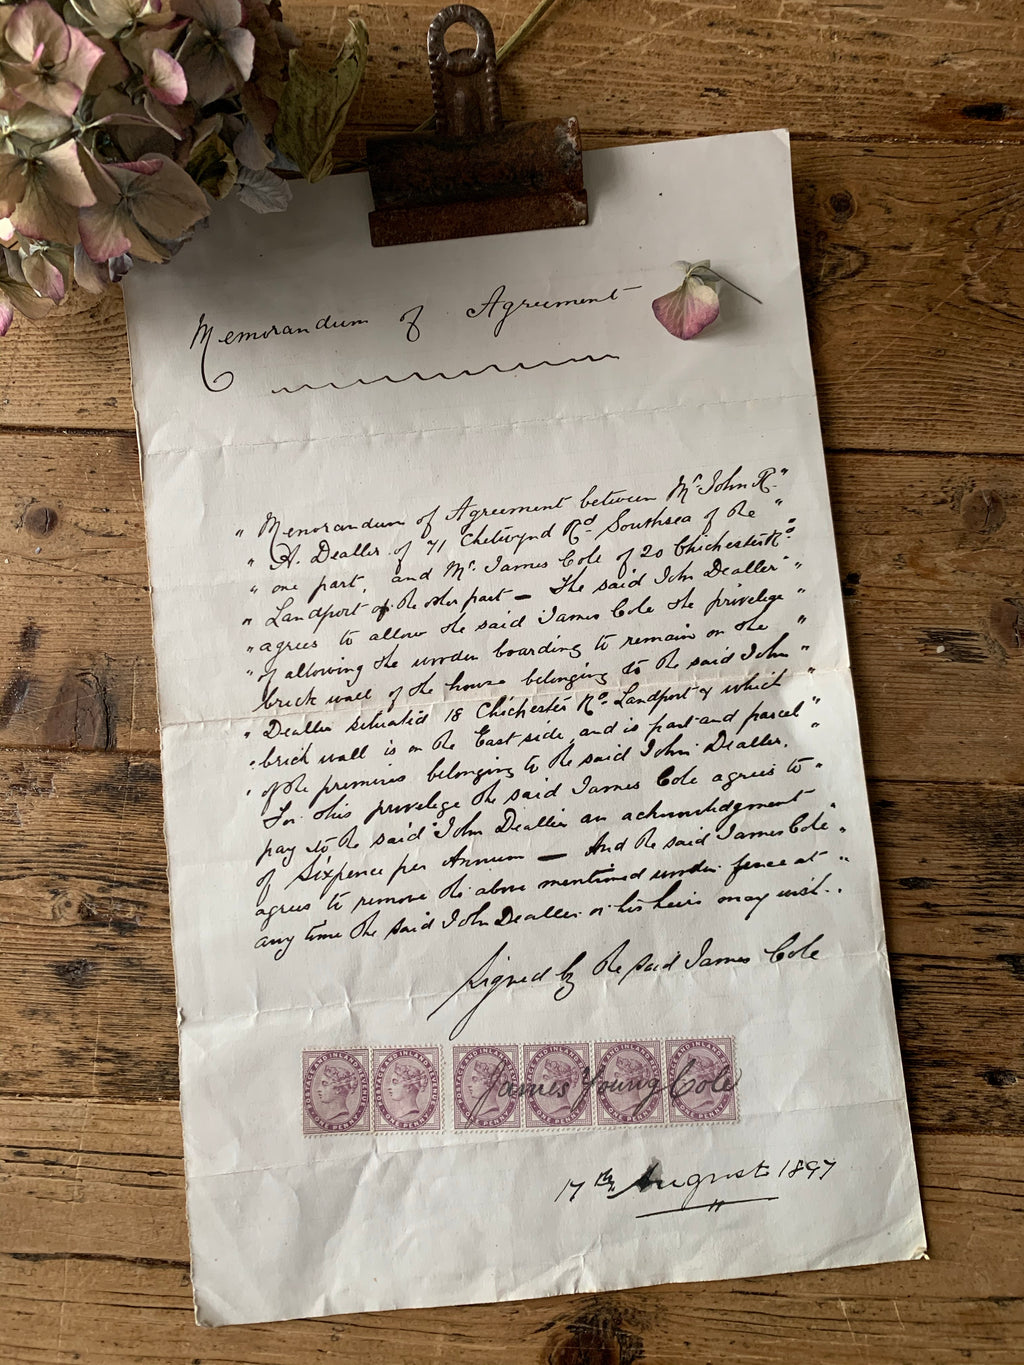 Memorandum of Agreement
" Memorandum of Agreement between Mr. John R. "
" A. Dealler of 71 Chetwynd Rd. Southsea of the "
" one part, and Mr. James Cole of 20 Chichester Rd. "
" Landport of the other part — The said John Dealler "
" agrees to allow the said James Cole the privelege "
" of allowing the wooden boarding to remain on the "
brick wall of the house belonging to the said John "
" Dealler situated 18 Chichester Rd. Landport & which "
" brick wall is on the East side, and is part and parcel "
" of the premises belonging to the said John Dealler. "
For this privelege the said James Cole agrees to "
pay to the said John Dealler an acknowledgment
of Sixpence per Annum — And the said James Cole "
agrees to remove the above mentioned wooden fence at "
any time the said John Dealler or his heirs may wish. "
Signed by the said James Cole
POSTAGE AND INLAND REVENUE POSTAGE AND INLAND REVENUE POSTAGE AND INLAND REVENUE POSTAGE AND INLAND REVENUE POSTAGE AND INLAND REVENUE POSTAGE AND INLAND REVENUE
James Young Cole
ONE PENNY ONE PENNY ONE PENNY ONE PENNY ONE PENNY ONE PENNY
17th August 1897